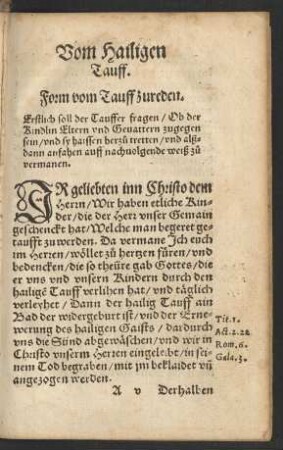 Vom Hailigen
Tauff.
Form vom Tauff zureden.
Erstlich soll der Tauffer fragen / Ob der
Kindlin Eltern vnd Geuattern zugegen
sein / vnd sy haissen herzů tretten / vnd alß-
dann anfahen auff nachuolgende weiß zů
vermanen.
IR geliebten inn Christo dem
Herrn / Wir haben etliche Kin-
der / die der Herr vnser Gemain
geschenckt hat / Welche man begeret ge-
taufft zu werden. Da vermane Ich euch
im Herren / wöllet zů hertzen füren / vnd
bedencken / die so theüre gab Gottes / die
er vns vnd vnsern Kindern durch den
hailigē Tauff verlihen hat / vnd täglich
verleyhet / Dann der hailig Tauff ain
Bad der widergeburt ist / vnd der Erne-
werung des hailigen Gaists / dardurch
vns die Sünd abgewäschen / vnd wir in
Christo vnserm Herren eingeleibt / in sei-
nem Tod begraben / mit jm beklaidet vñ
angezogen werden.
Tit. 1.
Act. 2. 22
Rom. 6.
Gala. 3.
A v Derhalben